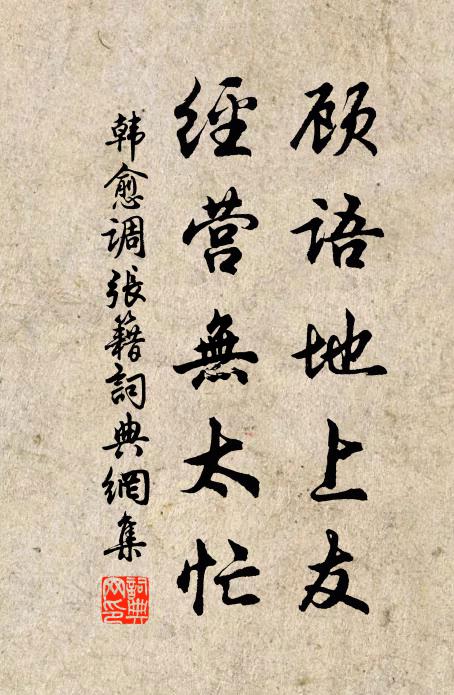 顾语地上友
經营無太忙
韩愈调張籍詞典網集